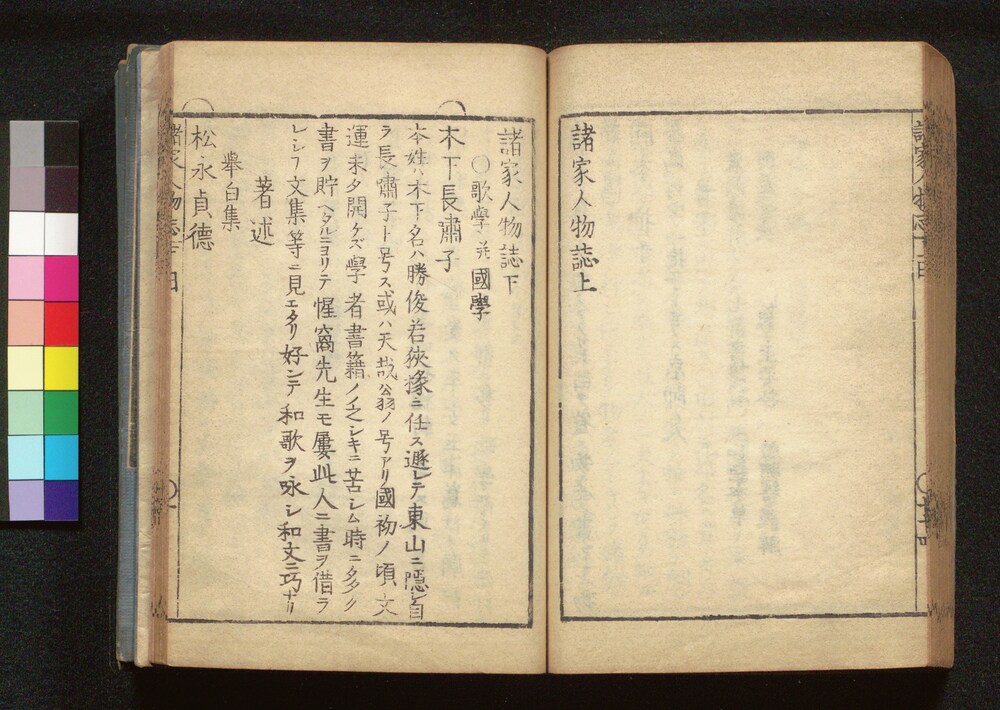 諸家人物誌上
諸家人物誌下
○歌學並國學
木下長嘯子
本姓ハ木下名ハ勝俊若狹掾ニ任ス遯レテ東山ニ隱レ自
ラ長嘯子ト号ス或ハ天哉翁ノ号アリ國初ノ頃文
運未タ開ケズ學者書籍ノ乏シキニ苦シム時ニ多ク
書ヲ貯ヘタルニヨリテ惺窩先生モ屢此人ニ書ヲ借ラ
レシフ文集等ニ見エタリ好ンテ和歌ヲ咏シ和文ニ巧ナリ
著述
擧白集
松永貞德
諸家人物志下